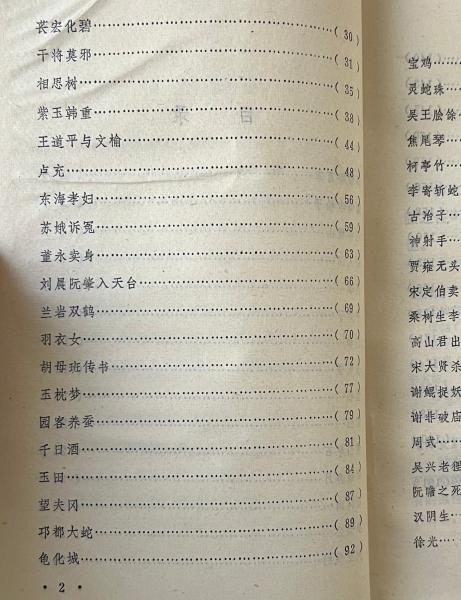 苌宏化碧…………(30)
干将莫邪…………(31)
相思树…………(35)
紫玉韩重…………(38)
王道平与文榆…………(44)
卢充…………(48)
东海孝妇…………(56)
苏娥诉冤…………(59)
董永卖身…………(63)
刘晨阮肇入天台…………(66)
兰岩双鹤…………(69)
羽衣女…………(70)
胡母班传书…………(72)
玉枕梦…………(77)
园客养蚕…………(79)
千日酒…………(81)
玉田…………(84)
望夫冈…………(87)
邛都大蛇…………(89)
龟化城…………(92)
· 2 ·
宝鸡……
灵蛇珠…
吴王脍余
焦尾琴…
柯亭竹…
李寄斩蛇
古冶子…
神射手…
贾雍无头
宋定伯卖
桑树生李
高山君出
宋大贤杀
谢鲲捉妖
谢非破庙
周式……
吴兴老狸
阮瞻之死
汉阴生…
徐光……